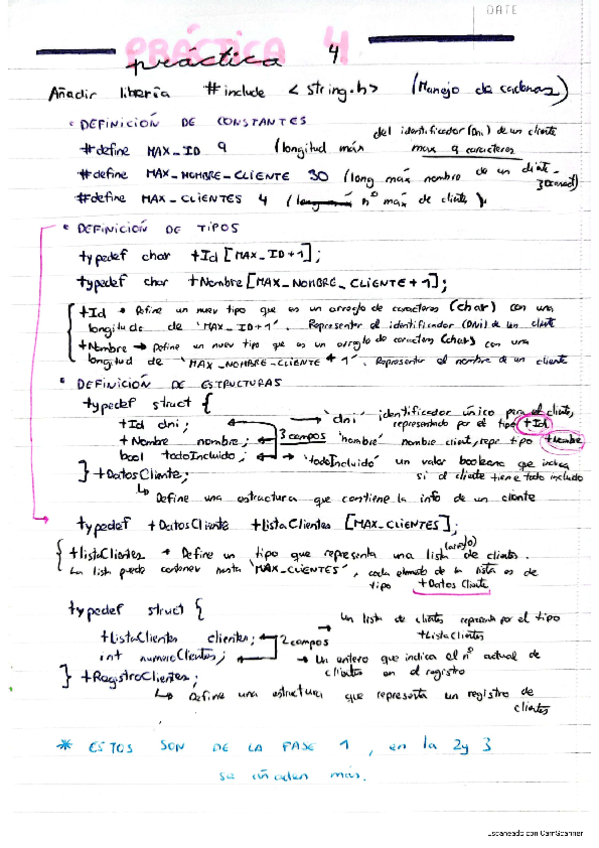 DATE
PRÁCTICA 4
práctica 4
Añadir libería #include <string.h> (Manejo de cadenas)
• DEFINICIÓN DE CONSTANTES
del identificador (Dni) de un cliente
#define MAX_ID 9 (longitud máx max 9 caracteres
#define MAX_NOMBRE_CLIENTE 30 (long máx nombre de un client-
30caract)
#define MAX_CLIENTES 4 (long máx nº máx de clients)
• DEFINICIÓN DE TIPOS
typedef char tId [MAX_ID+1];
typedef char tNombre [MAX_NOMBRE_CLIENTE+1];
tId → Define un nuevo tipo que es un arreglo de caracteres (char) con una
longitud de 'MAX_ID+1'. Representar el identificador (DNI) de un client
tNombre → Define un nuevo tipo que es un arreglo de caracters (char) con una
longitud de 'MAX_NOMBRE-CLIENTE + 1'. Representar el nombre de un cliente
• DEFINICIÓN DE ESTRUCTURAS
typedef struct {
→ 'dni' identificador único para el cliente,
tId dni; representado por el tipo tId
tNombre nombre; 3 campos 'nombre' nombre client, repr tipo tNombre
bool todoIncluido; → 'todoIncluido' un valor booleano que indica
} tDatosCliente; si el cliente tiene todo incluido
↳ Define una estructura que contiene la info de un cliente
typedef tDatosCliente tListaClientes [MAX_CLIENTES];
(arreglo)
tlistaClientes → Define un tipo que representa una lista de clients.
La lista puede contener hasta 'MAX_CLIENTES', cada elemento de la lista es de
tipo tDatos Cliente
typedef struct {
un lista de clients representa por el tipo
tListaClientes clientes; 2 campos → tListaClientes
int numeroClientes; → Un entero que indica el nº actual de
} tRegistroClientes; clientes en el registro
↳ Define una estructura que representa un registro de
clientes
* ESTOS SON DE LA FASE 1, en la 2 y 3
se añaden más.
Escaneado con CamScanner